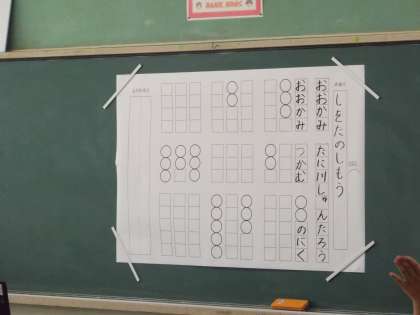 しをたのしもう
おおかみ たに川しゅんたろう
おおかみ つかむ ○○のにく